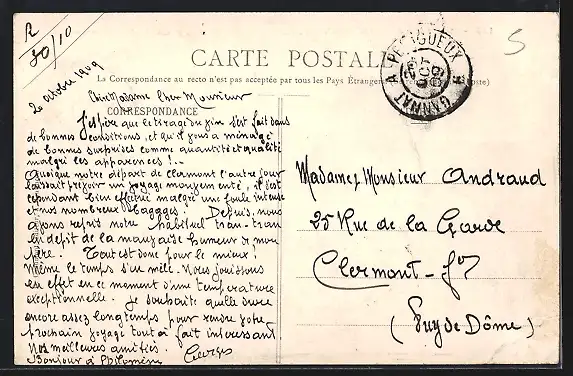 R
30/10
5
CARTE POSTALE
A PERIGUEUX
GANNAT A
La Correspondance au recto n'est pas acceptée par tous les Pays Étrangers
20 octobre 1909
Chère Madame Cher Monsieur
CORRESPONDANCE
J'espère que le tirage du vin s'est fait dans
de bonnes conditions, et qu'il vous a ménagé
de bonnes surprises comme quantité et qualité
malgré les apparences!..
Quoique notre départ de Clermont l'autre jour
laissait prévoir un voyage mouvementé, il s'est
cependant bien effectué malgré une foule intense
et nos nombreux bagages! Depuis, nous
avons repris notre habituel tran-tran
en dépit de la mauvaise humeur de mon
père. Tout est donc pour le mieux!
Même le temps s'en mêle. Nous jouissons
en effet en ce moment d'une température
exceptionnelle. Je souhaite qu'elle dure
encore assez longtemps pour rendre votre
prochain voyage tout à fait intéressant
Nos meilleures amitiés.
Georges
Bonjour à Philomène
Madame & Monsieur Andraud
25 Rue de la Garde
Clermont-Fd
(Puy de Dôme)